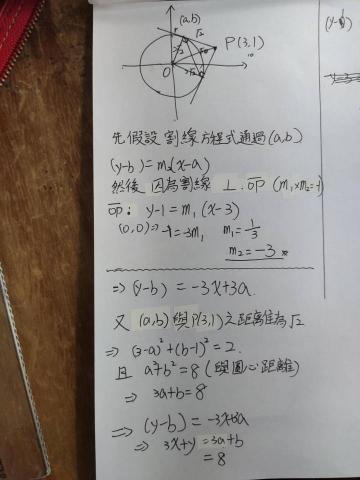 (a,b)
P(3,1)
O
先假設割線方程式通過(a,b)
(y-b)=m₂(x-a)
然後因為割線⊥OP (m₁×m₂=-1)
OP: y-1=m₁(x-3)
(0,0)⇒ -1=-3m₁ m₁=1/3
m₂=-3
⇒ (y-b) = -3x+3a.
又 (a,b)與P(3,1)之距離為√2
⇒ (3-a)²+(b-1)²=2.
且 a²+b²=8 (與圓心距離)
⇒ 3a+b=8
⇒ (y-b) = -3x+3a
⇒ 3x+y=3a+b
=8